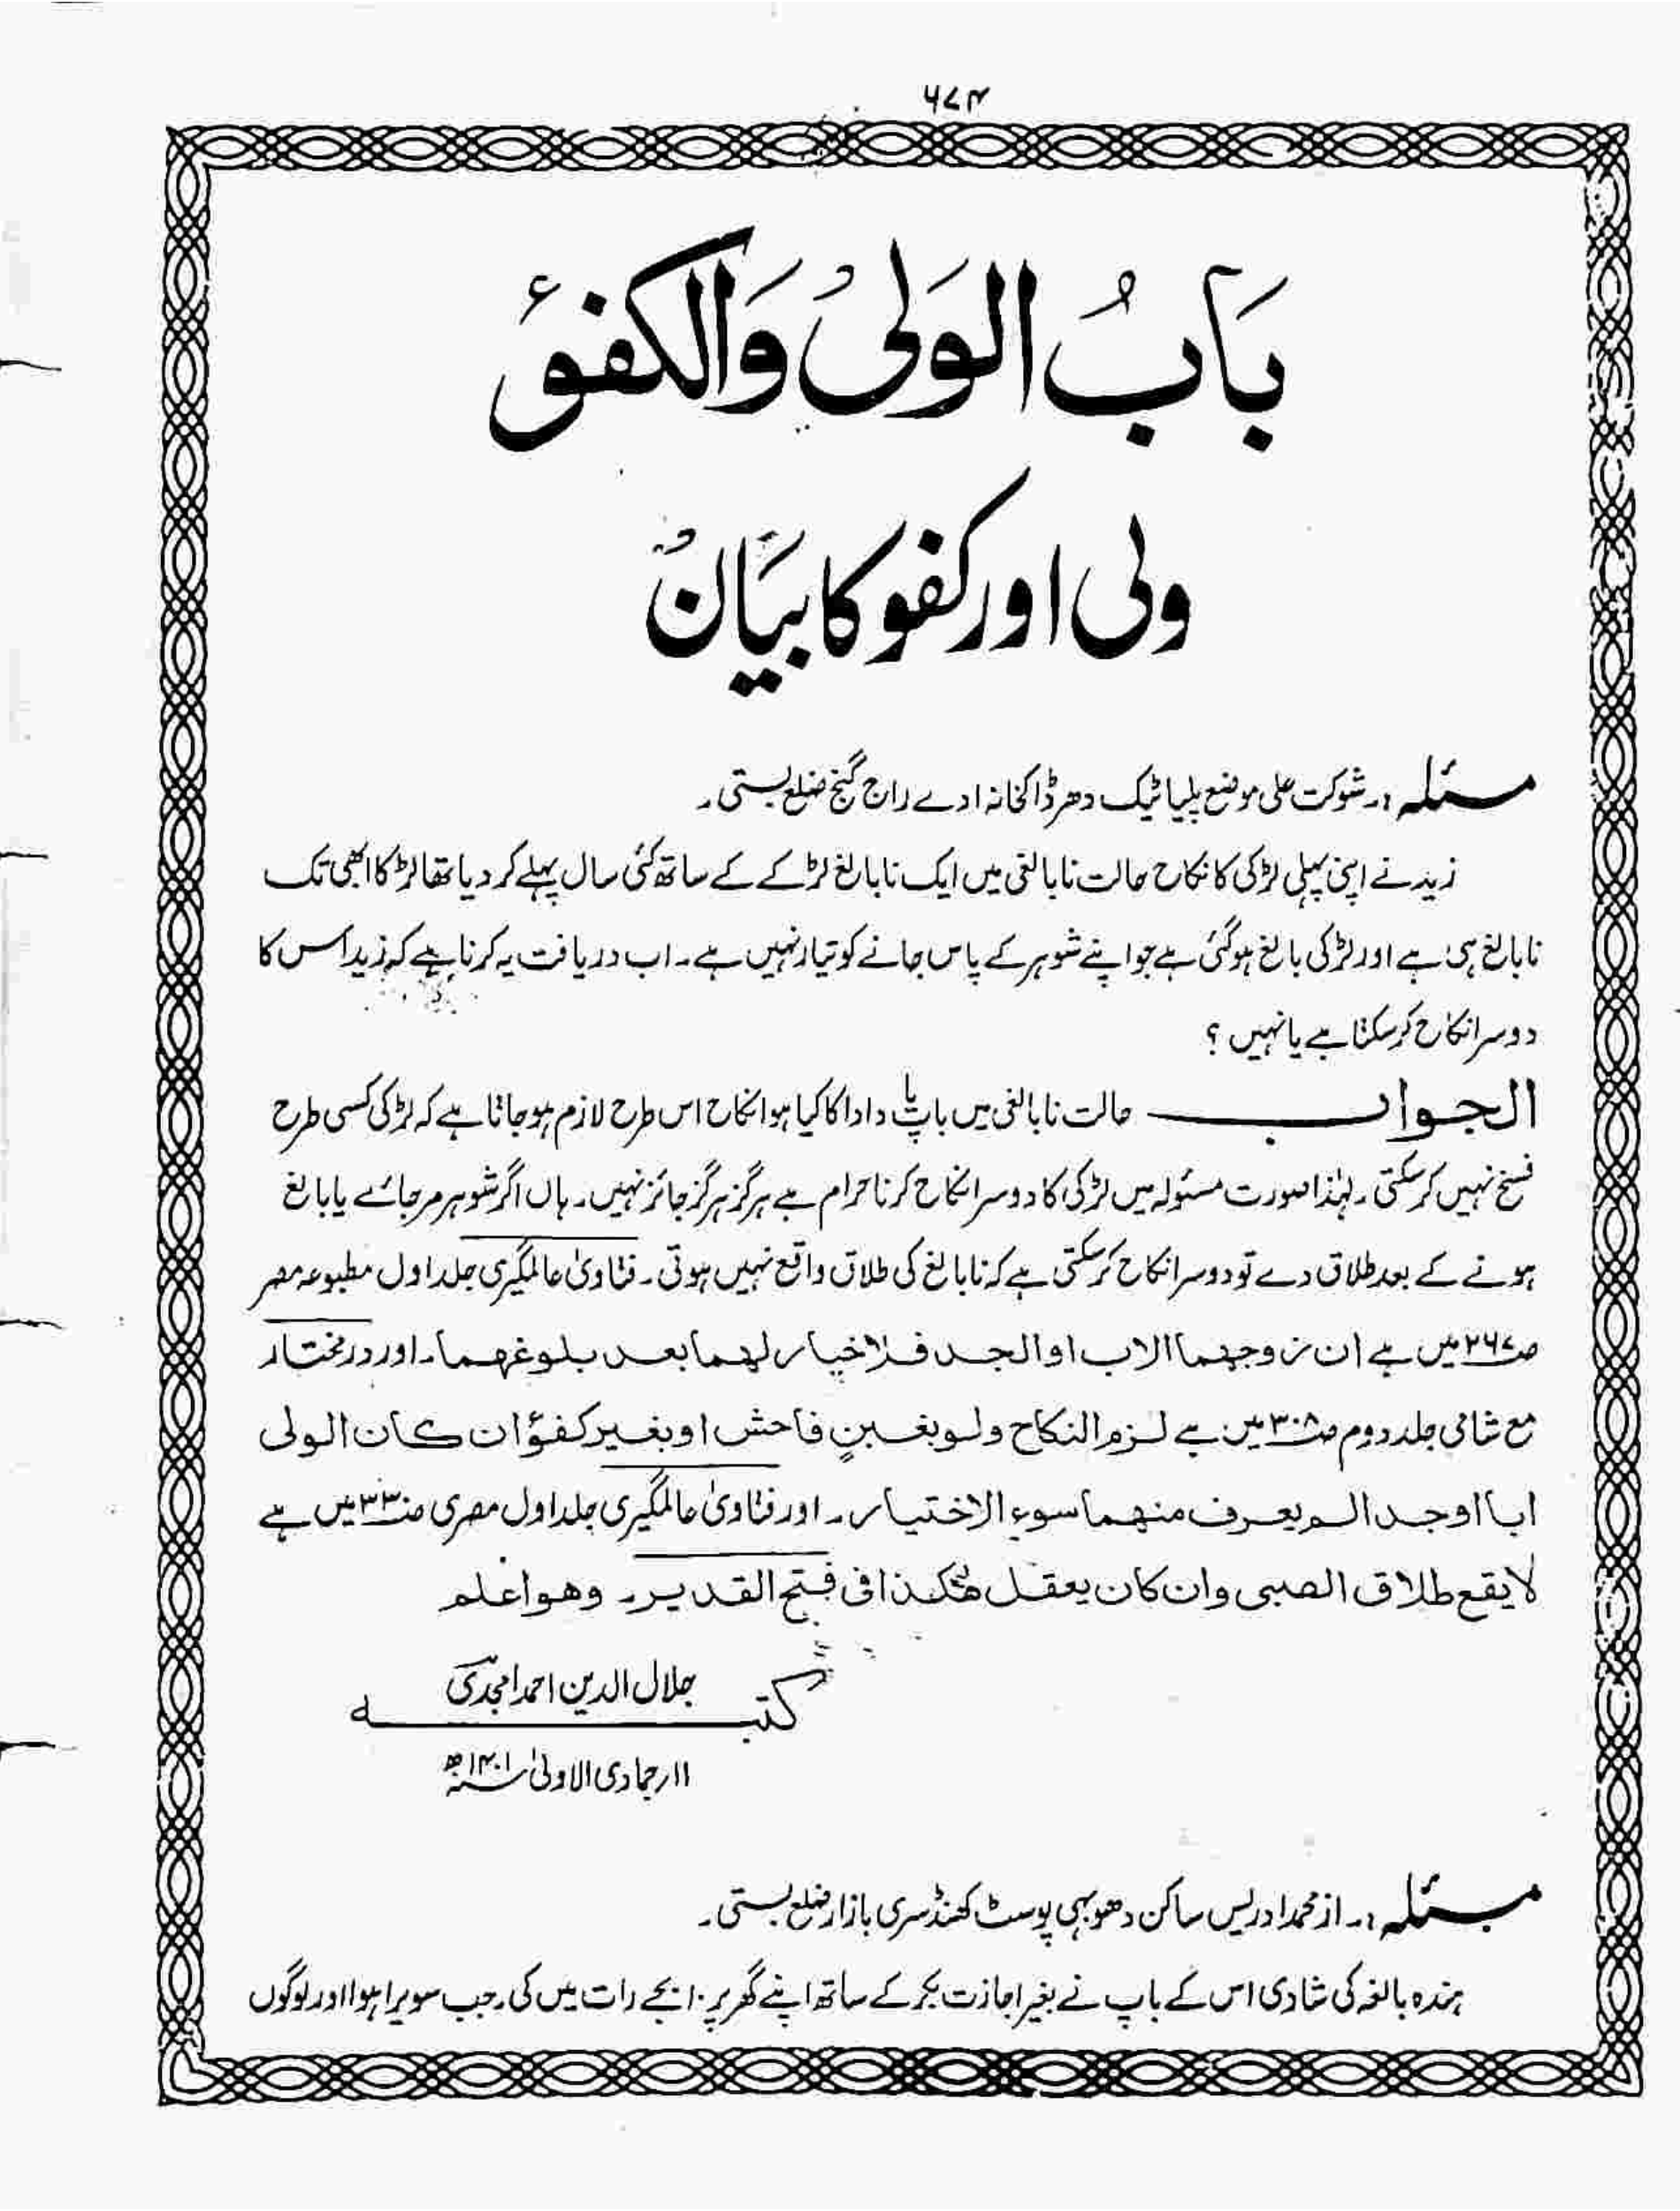 ۶۷۴
بَابُ الوَلیُ وَالکفؤ
ولی اور کفو کا بیَانُ
مسئلہ:۔ شوکت علی موضع پلیا ٹیک دھر ڈاکخانہ ادے راج گنج ضلع بستی۔
زید نے اپنی پہلی لڑکی کا نکاح حالت نابالغی میں ایک نابالغ لڑکے کے ساتھ کئی سال پہلے کر دیا تھا لڑکا ابھی تک
نابالغ ہی ہے اور لڑکی بالغ ہوگئی ہے جو اپنے شوہر کے پاس جانے کو تیار نہیں ہے۔ اب دریافت یہ کرنا ہے کہ زید اس کا
دوسرا نکاح کر سکتا ہے یا نہیں ؟
الجواب حالت نابالغی میں باپ یا دادا کا کیا ہوا نکاح اس طرح لازم ہو جاتا ہے کہ لڑکی کسی طرح
فسخ نہیں کر سکتی۔ لہٰذا صورت مسئولہ میں لڑکی کا دوسرا نکاح کرنا حرام ہے ہرگز ہرگز جائز نہیں۔ ہاں اگر شوہر مر جائے یا بالغ
ہونے کے بعد طلاق دے تو دوسرا نکاح کر سکتی ہے کہ نابالغ کی طلاق واقع نہیں ہوتی۔ فتاویٰ عالمگیری جلد اول مطبوعہ مصر
ص۲۶۷ میں ہے ان زوجہما الاب او الجد فلا خیار لہما بعد بلوغہما۔ اور درمختار
مع شامی جلد دوم ص۳۰۸ میں ہے لزم النکاح ولو بغبنٍ فاحش او بغیر کفؤ ان کان الولی
ابا او جدا لم یعرف منہما سوء الاختیار۔ اور فتاویٰ عالمگیری جلد اول مصری ص۳۳۰ میں ہے
لا یقع طلاق الصبی وان کان یعقل ھٰکذا فی فتح القدیر۔ وھو اعلم
جلال الدین احمد امجدی
کتبہ
۱۱؍ جمادی الاولیٰ سنہ ۱۴۰۱ھ
مسئلہ:۔ از محمد ادریس ساکن دھوبہی پوسٹ کھنڈسری بازار ضلع بستی۔
ہندہ بالغہ کی شادی اس کے باپ نے بغیر اجازت بکر کے ساتھ اپنے گھر پر ۱۰ بجے رات میں کی۔ جب سویرا ہوا اور لوگوں